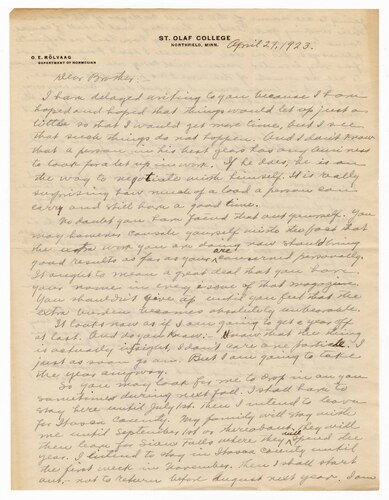 ST. OLAF COLLEGE
NORTHFIELD, MINN.
April 29, 1923.
O. E. RÖLVAAG
DEPARTMENT OF NORWEGIAN
Dear Brother:
I have delayed writing to you because I have
hoped and hoped that things would let up just a
little so that I would get more time, but I see
that such things do not happen. And I don't know
that a person in his best years has any business
to look for a let up in work. If he does, he is on
the way to negotiate with himself. It is really
surprising how much of a load a person can
carry and still have a good time.
No doubt you have found that out yourself. You
may however console yourself with the fact that
the extra work you are doing now should bring
good results as far as you are concerned personally.
It ought to mean a great deal that you have
your name in every issue of that magazine.
You shouldn't give up until you feel that the
extra burden becomes absolutely unbearable.
It looks now as if I am going to get a year off
at last. And do you know: now that the thing
is actually in sight I don't care one particle
just as soon go on. But I am going to take
the year anyway.
So you may look for me to drop in on you
sometimes during next fall. I shall have to
stay here until July 1st. Then I intend to leave
for Itasca County. My family will stay with
me until September 1st or thereabout, they will
then leave for Sioux Falls where they will spend the
year. I intend to stay in Itasca County until
the first week in November. Then I shall start
out, – not to return before August next year. I am